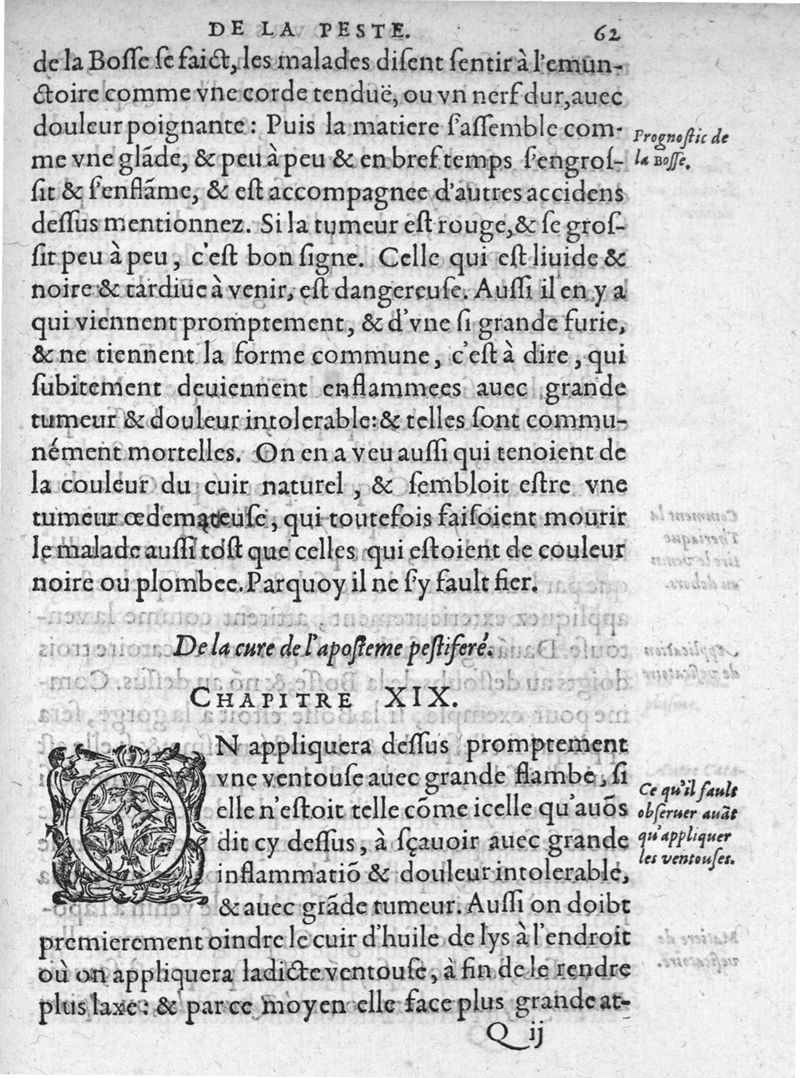 DE LA PESTE. 62
de la Bosse se faict, les malades disent sentir à l'emun-
ctoire comme vne corde tenduë, ou vn nerf dur, auec
douleur poignante: Puis la matiere s'assemble com-
me vne glãde, & peu à peu & en bref temps s'engros-
sit & s'enflãme, & est accompagnee d'autres accidens
dessus mentionnez. Si la tumeur est rouge, & se gros-
sit peu à peu, c'est bon signe. Celle qui est liuide &
noire & tardiue à venir, est dangereuse. Aussi il en y a
qui viennent promptement, & d'vne si grande furie,
& ne tiennent la forme commune, c'est à dire, qui
subitement deuiennent enflammees auec grande
tumeur & douleur intolerable: & telles sont commu-
nément mortelles. On en a veu aussi qui tenoient de
la couleur du cuir naturel, & sembloit estre vne
tumeur œdemateuse, qui toutefois faisoient mourir
le malade aussi tost que celles qui estoient de couleur
noire ou plombee. Parquoy il ne s'y fault fier.
Prognostic de
la Bosse.
De la cure de l'aposteme pestiferé.
CHAPITRE XIX.
ON appliquera dessus promptement
vne ventouse auec grande flambe, si
elle n'estoit telle cõme icelle qu'auõs
dit cy dessus, à sçauoir auec grande
inflammatiõ & douleur intolerable,
& auec grãde tumeur. Aussi on doibt
premierement oindre le cuir d'huile de lys à l'endroit
où on appliquera ladicte ventouse, à fin de le rendre
plus laxe: & par ce moyen elle face plus grande at-
Ce qu'il fault
obseruer auãt
qu'appliquer
les ventouses.
Q ij